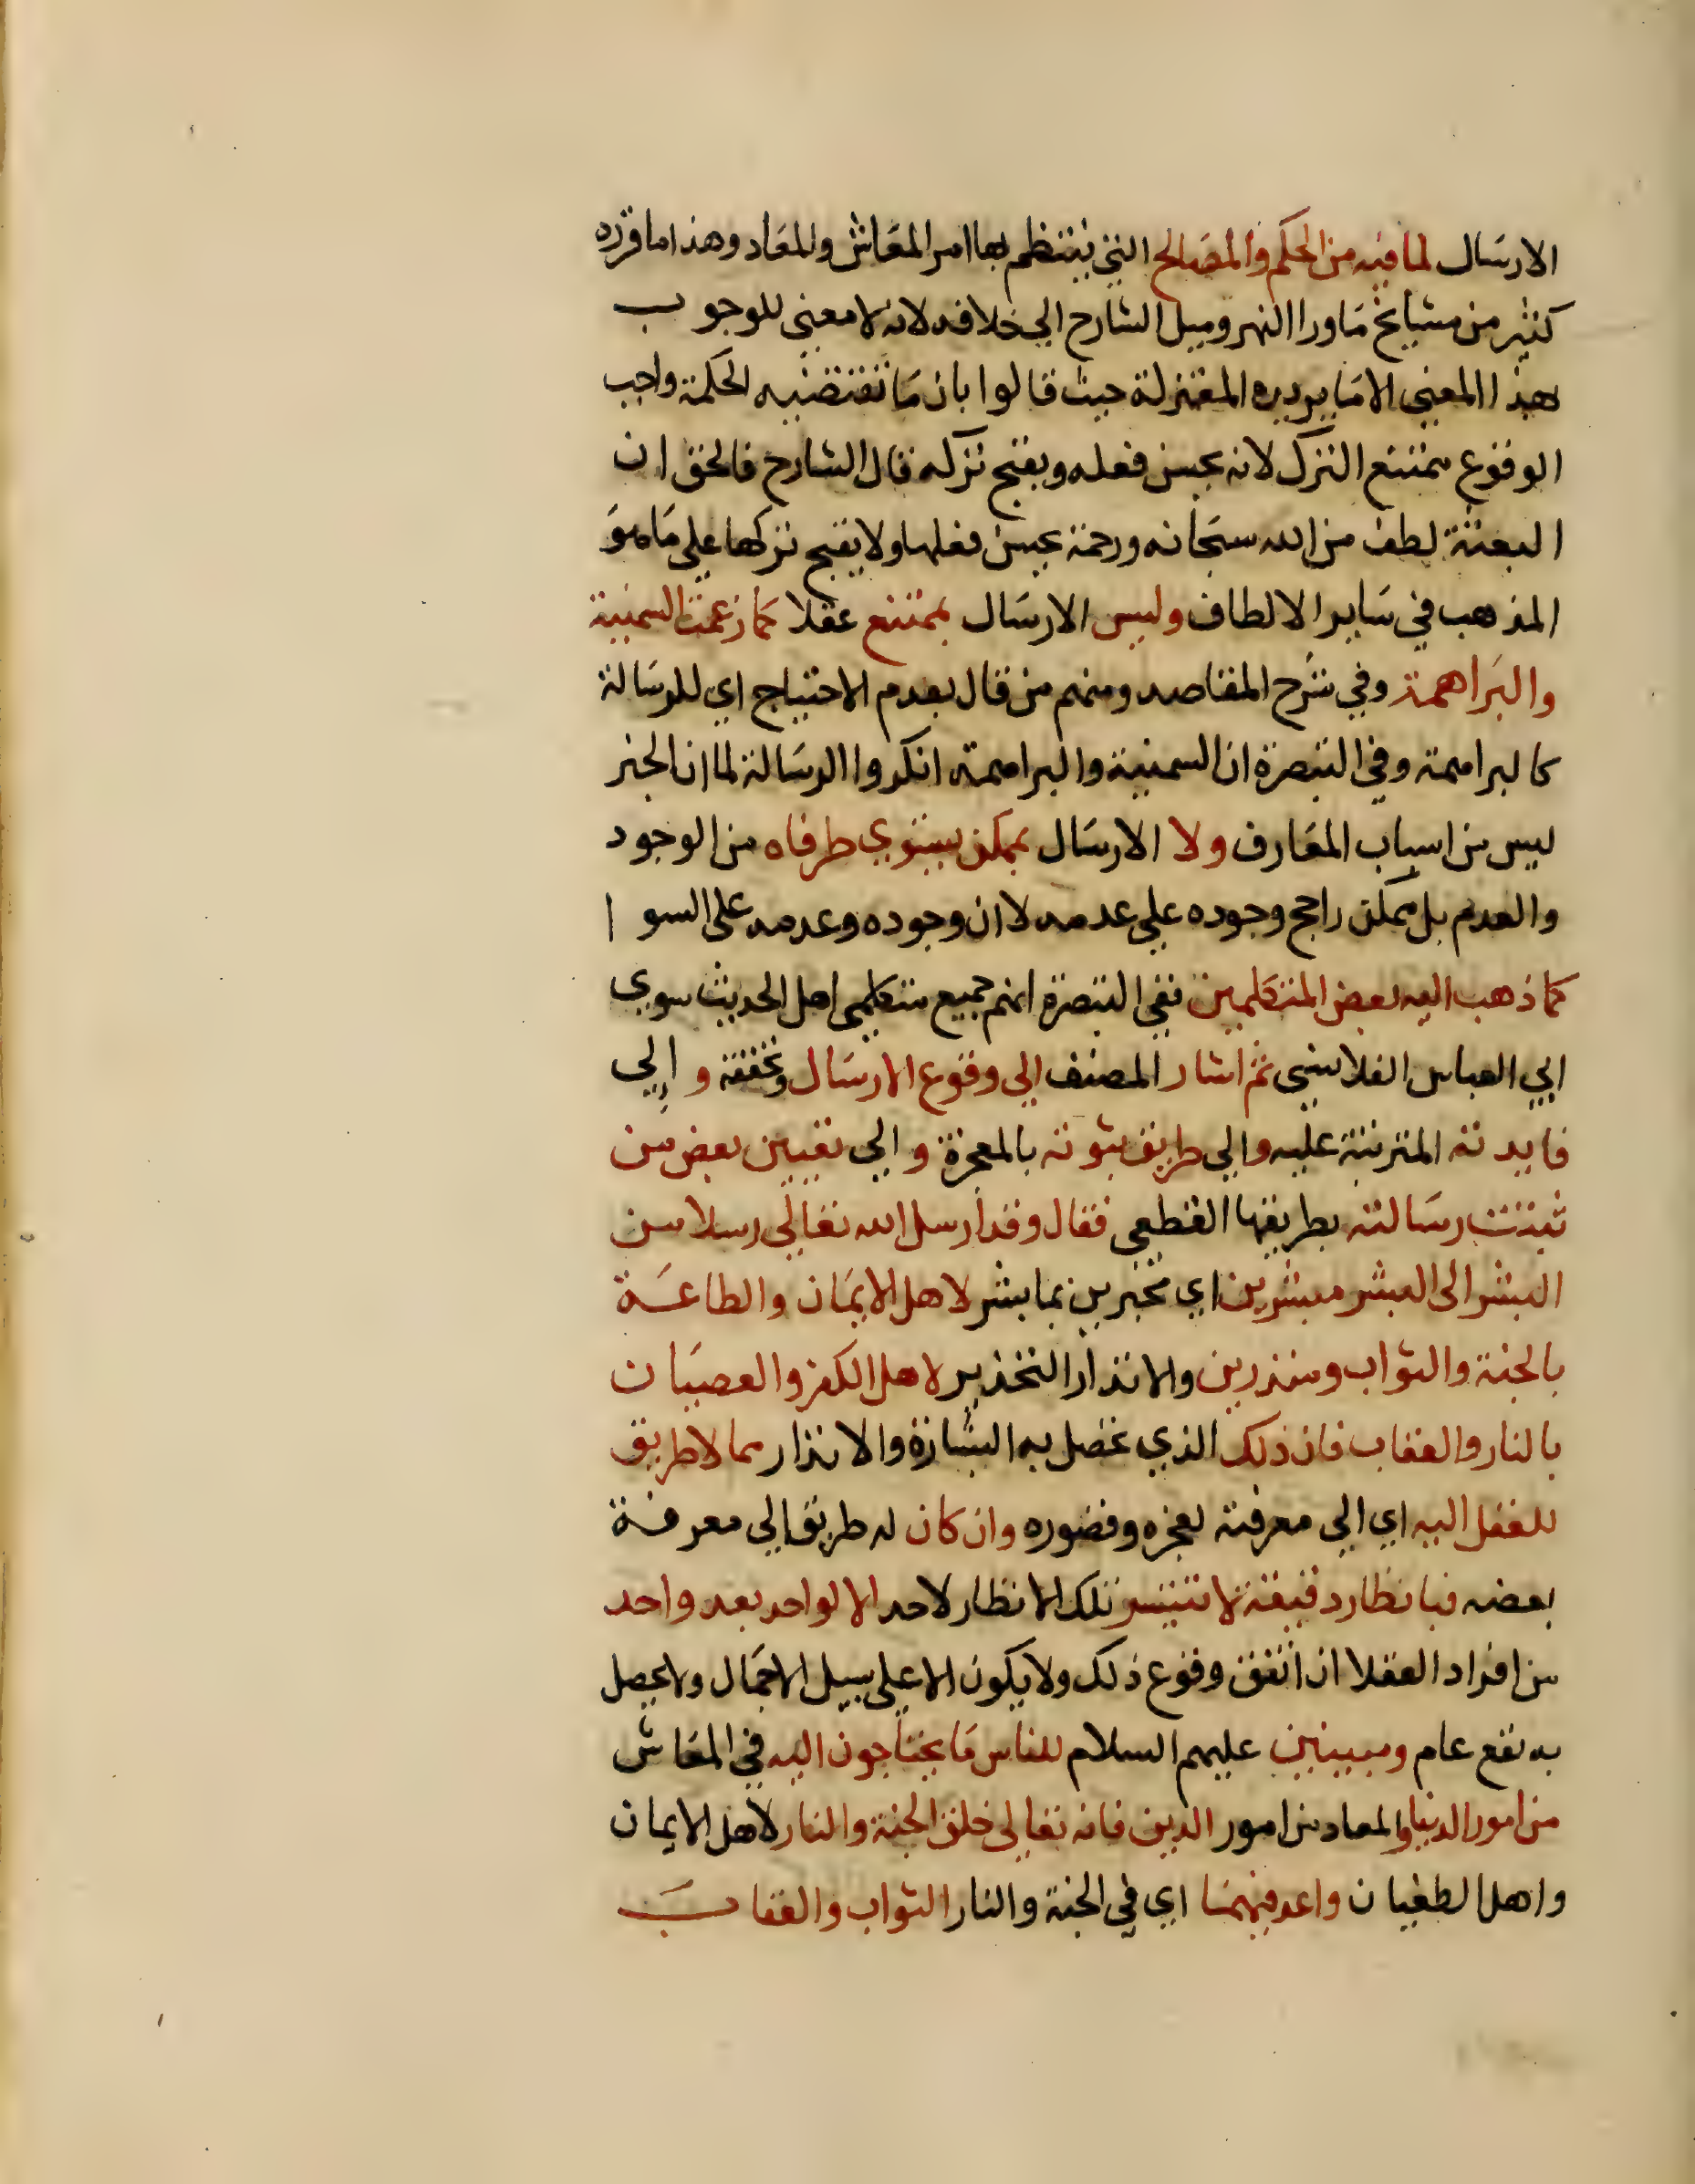 الارسال لما فيه من الحكم والمصالح التي ينتظم بها امر المعاش والمعاد وهذا ما قرره
كثير من مشايخ ما ورا النهر وميل الشارح الي خلافه لانه لا معني للوجوب
بهذا المعني الا ما يريده المعتزلة حيث قالوا بان ما تقتضيه الحكمة واجب
الوقوع ممتنع الترك لانه يحسن فعله ويقبح تركه قال الشارح فالحق ان
البعثة لطف من الله سبحانه ورحمة يحسن فعلها ولا يقبح تركها علي ما هو
المذهب في ساير الالطاف وليس الارسال بممتنع عقلا كما زعمت السمنية
والبراهمة وفي شرح المقاصد ومنهم من قال بعدم الاحتياج اي للرسالة
كالبراهمة وفي التبصرة ان السمنية والبراهمة انكروا الرسالة لما ان الخبر
ليس من اسباب المعارف ولا الارسال بممكن يستوي طرفاه من الوجود
والعدم بل ممكن راجح وجوده علي عدمه لا ان وجوده وعدمه علي السوا
كما ذهب اليه بعض المتكلمين ففي التبصرة انهم جميع متكلمي اهل الحديث سوي
ابي العباس القلانسي ثم اشار المصنف الي وقوع الارسال وتحققه و الي
فايدته المترتبة عليه والي طريق ثبوته بالمعجزة و الي تعيين بعض من
ثبتت رسالته بطريقها القطعي فقال وقد ارسل الله تعالي رسلا من
البشر الي البشر مبشرين اي مخبرين بما يبشر لاهل الايمان والطاعة
بالجنة والثواب ومنذرين والانذار التحذير لاهل الكفر والعصيان
بالنار والعقاب فان ذلك الذي تحصل به البشارة والانذار مما لا طريق
للعقل اليه اي الي معرفته لعجزه وقصوره وان كان له طريق الي معرفة
بعضه فبانظار دقيقة لا تتيسر تلك الانظار لاحد الا لواحد بعد واحد
من افراد العقلا ان اتفق وقوع ذلك ولا يكون الا علي سبيل الاجمال ولا يحصل
به نفع عام ومبينين عليهم السلام للناس ما يحتاجون اليه في المعاش
من امور الدنيا والمعاد من امور الدين فانه تعالي خلق الجنة والنار لاهل الايمان
واهل الطغيان واعد فيهما اي في الجنة والنار الثواب والعقاب